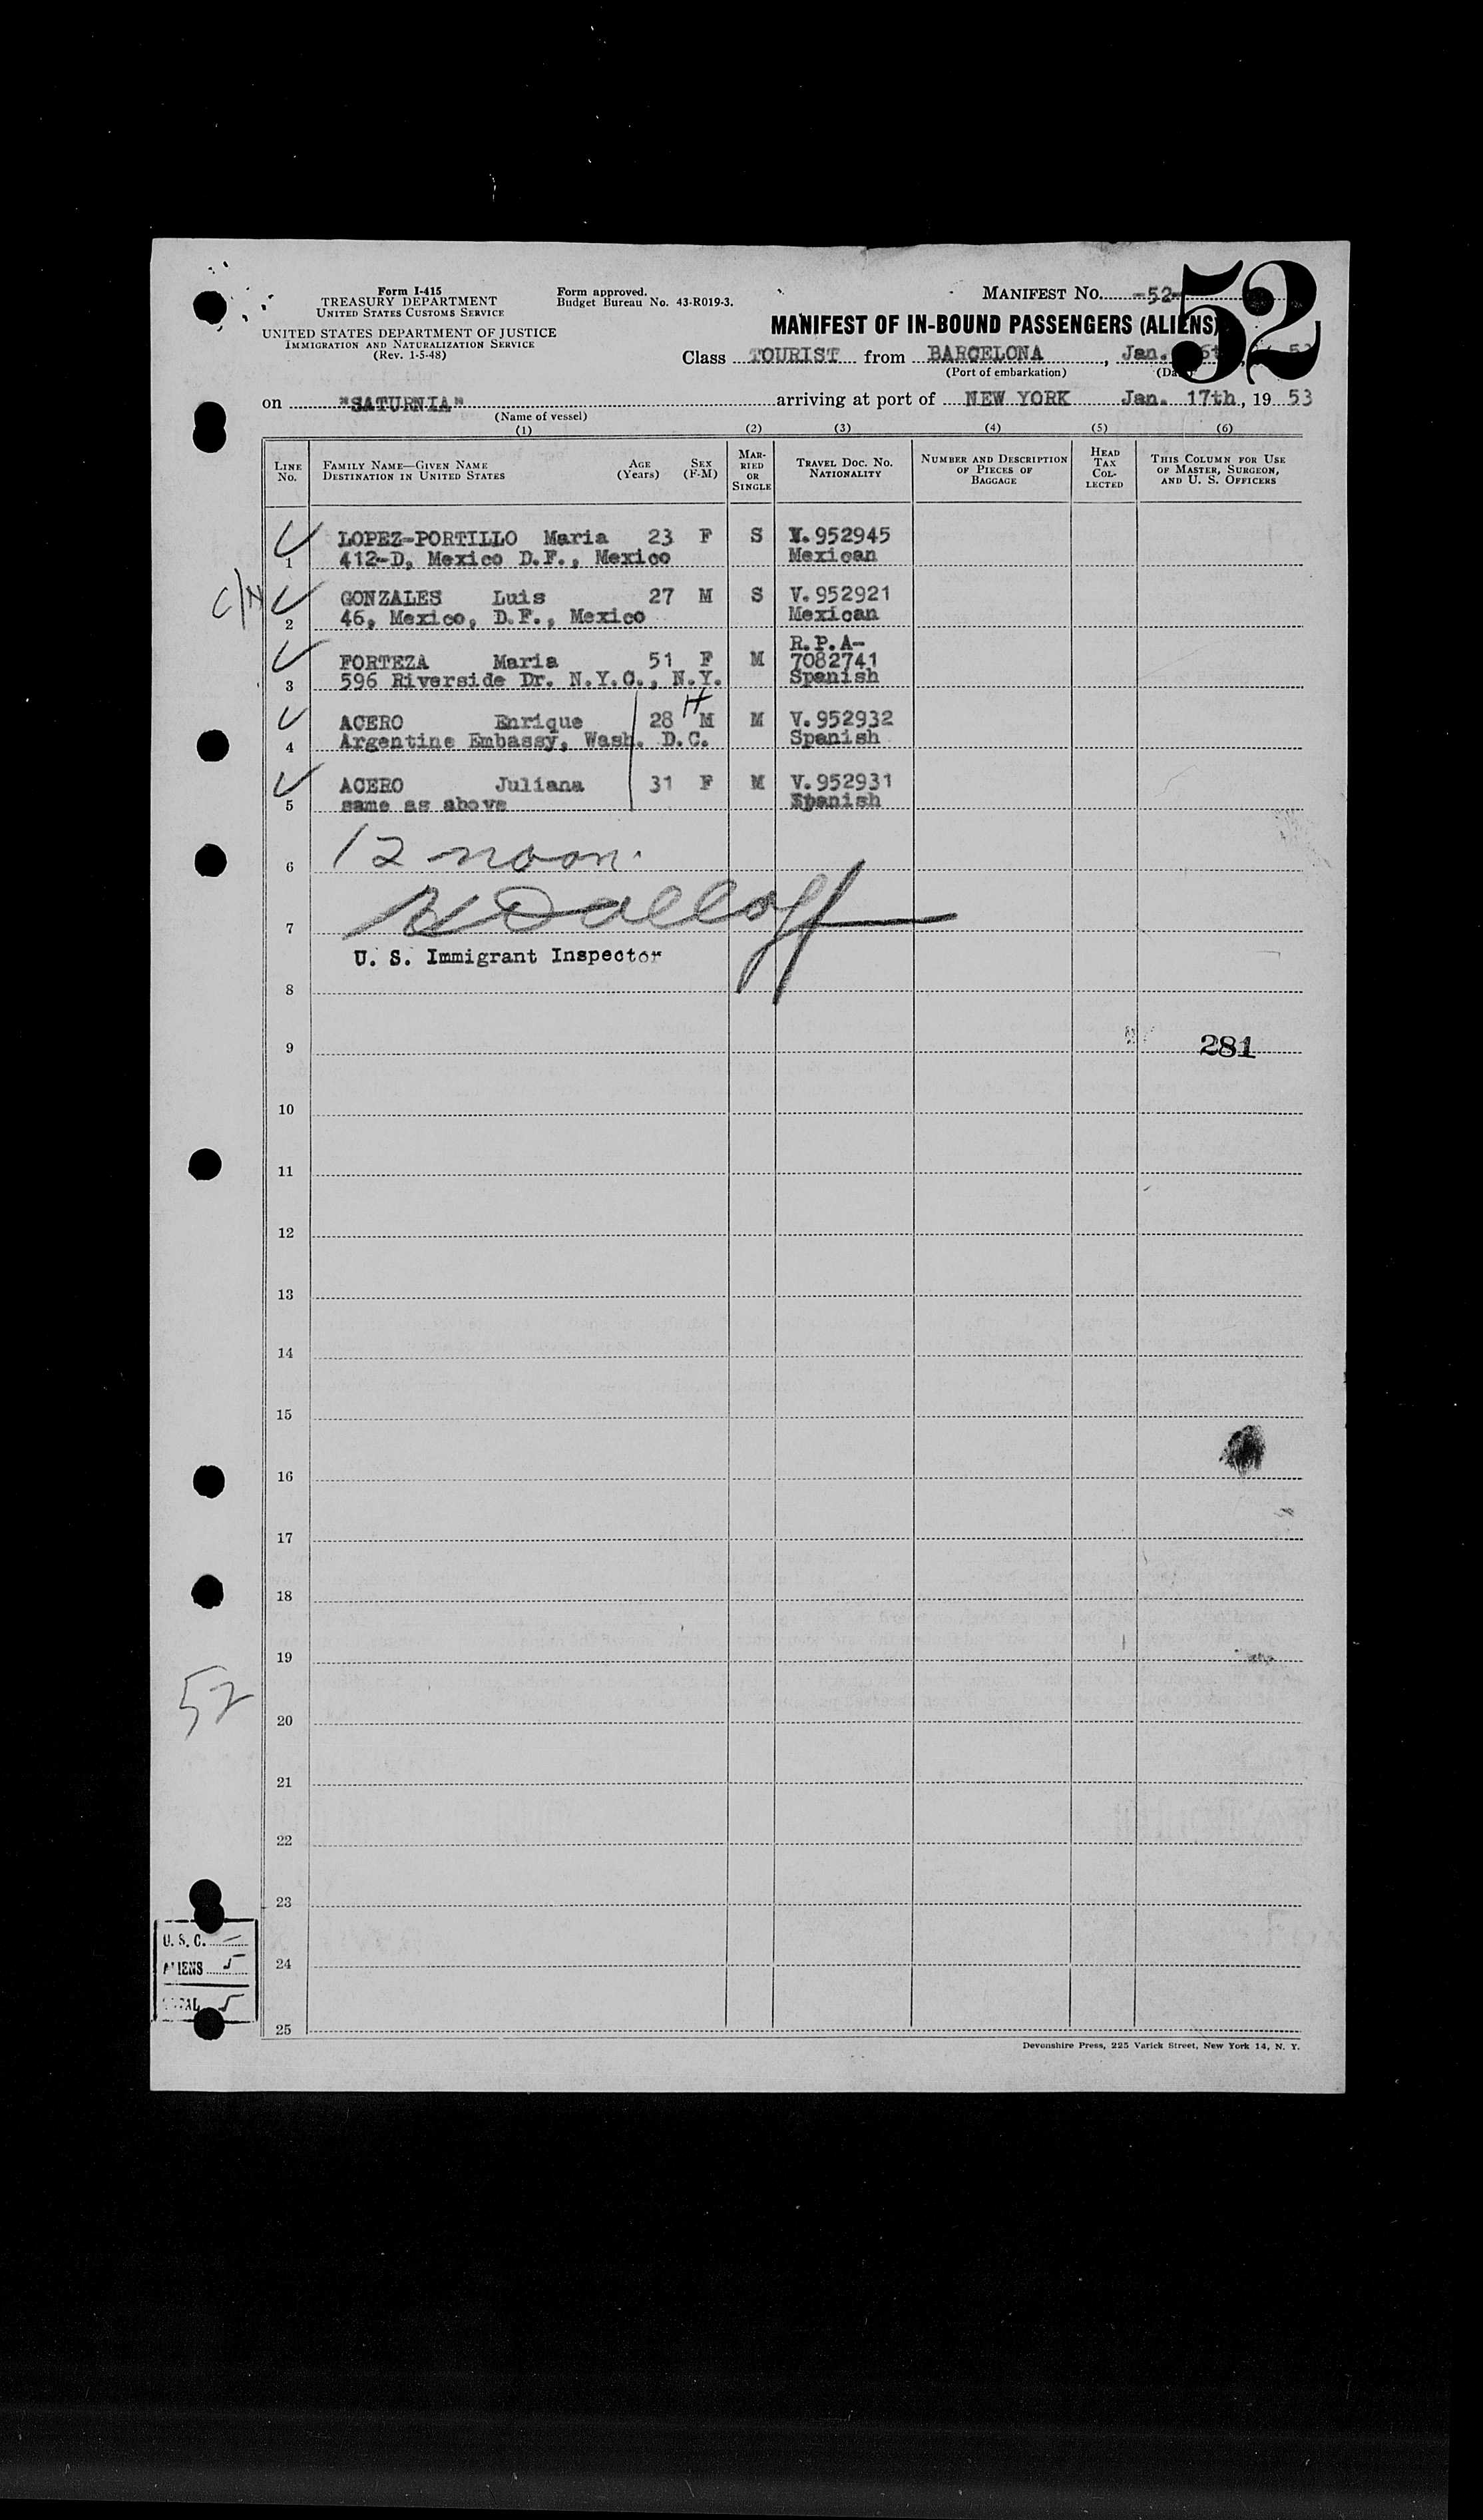 Form I-415
TREASURY DEPARTMENT
UNITED STATES CUSTOMS SERVICE
UNITED STATES DEPARTMENT OF JUSTICE
IMMIGRATION AND NATURALIZATION SERVICE
(Rev. 1-5-48)
Form approved.
Budget Bureau No. 43-R019-3.
MANIFEST No. -52-
52
MANIFEST OF IN-BOUND PASSENGERS (ALIENS)
Class TOURIST from BARCELONA, Jan.
(Port of embarkation)
on "SATURNIA" arriving at port of NEW YORK Jan. 17th, 19 53
(Name of vessel)
(1) (2) (3) (4) (5) (6)
LINE No.
FAMILY NAME—GIVEN NAME
DESTINATION IN UNITED STATES
AGE (Years)
SEX (F-M)
MARRIED OR SINGLE
TRAVEL DOC. NO.
NATIONALITY
NUMBER AND DESCRIPTION OF PIECES OF BAGGAGE
HEAD TAX COLLECTED
THIS COLUMN FOR USE OF MASTER, SURGEON, AND U. S. OFFICERS
LOPEZ-PORTILLO Maria 23 F S V.952945
1 412-D, Mexico D.F., Mexico Mexican
GONZALES Luis 27 M S V.952921
2 46, Mexico, D.F., Mexico Mexican
R.P.A-
FORTEZA Maria 51 F M 7082741
3 596 Riverside Dr. N.Y.C., N.Y. Spanish
H
ACERO Enrique 28 M M V.952932
4 Argentine Embassy, Wash. D.C. Spanish
ACERO Juliana 31 F M V.952931
5 same as above Spanish
6 12 noon.
7
U. S. Immigrant Inspector
8
9 281
10
11
12
13
14
15
16
17
18
19
52
20
21
22
23
U. S. C. —
ALIENS 5
24
TOTAL 5
25
Devonshire Press, 225 Varick Street, New York 14, N. Y.